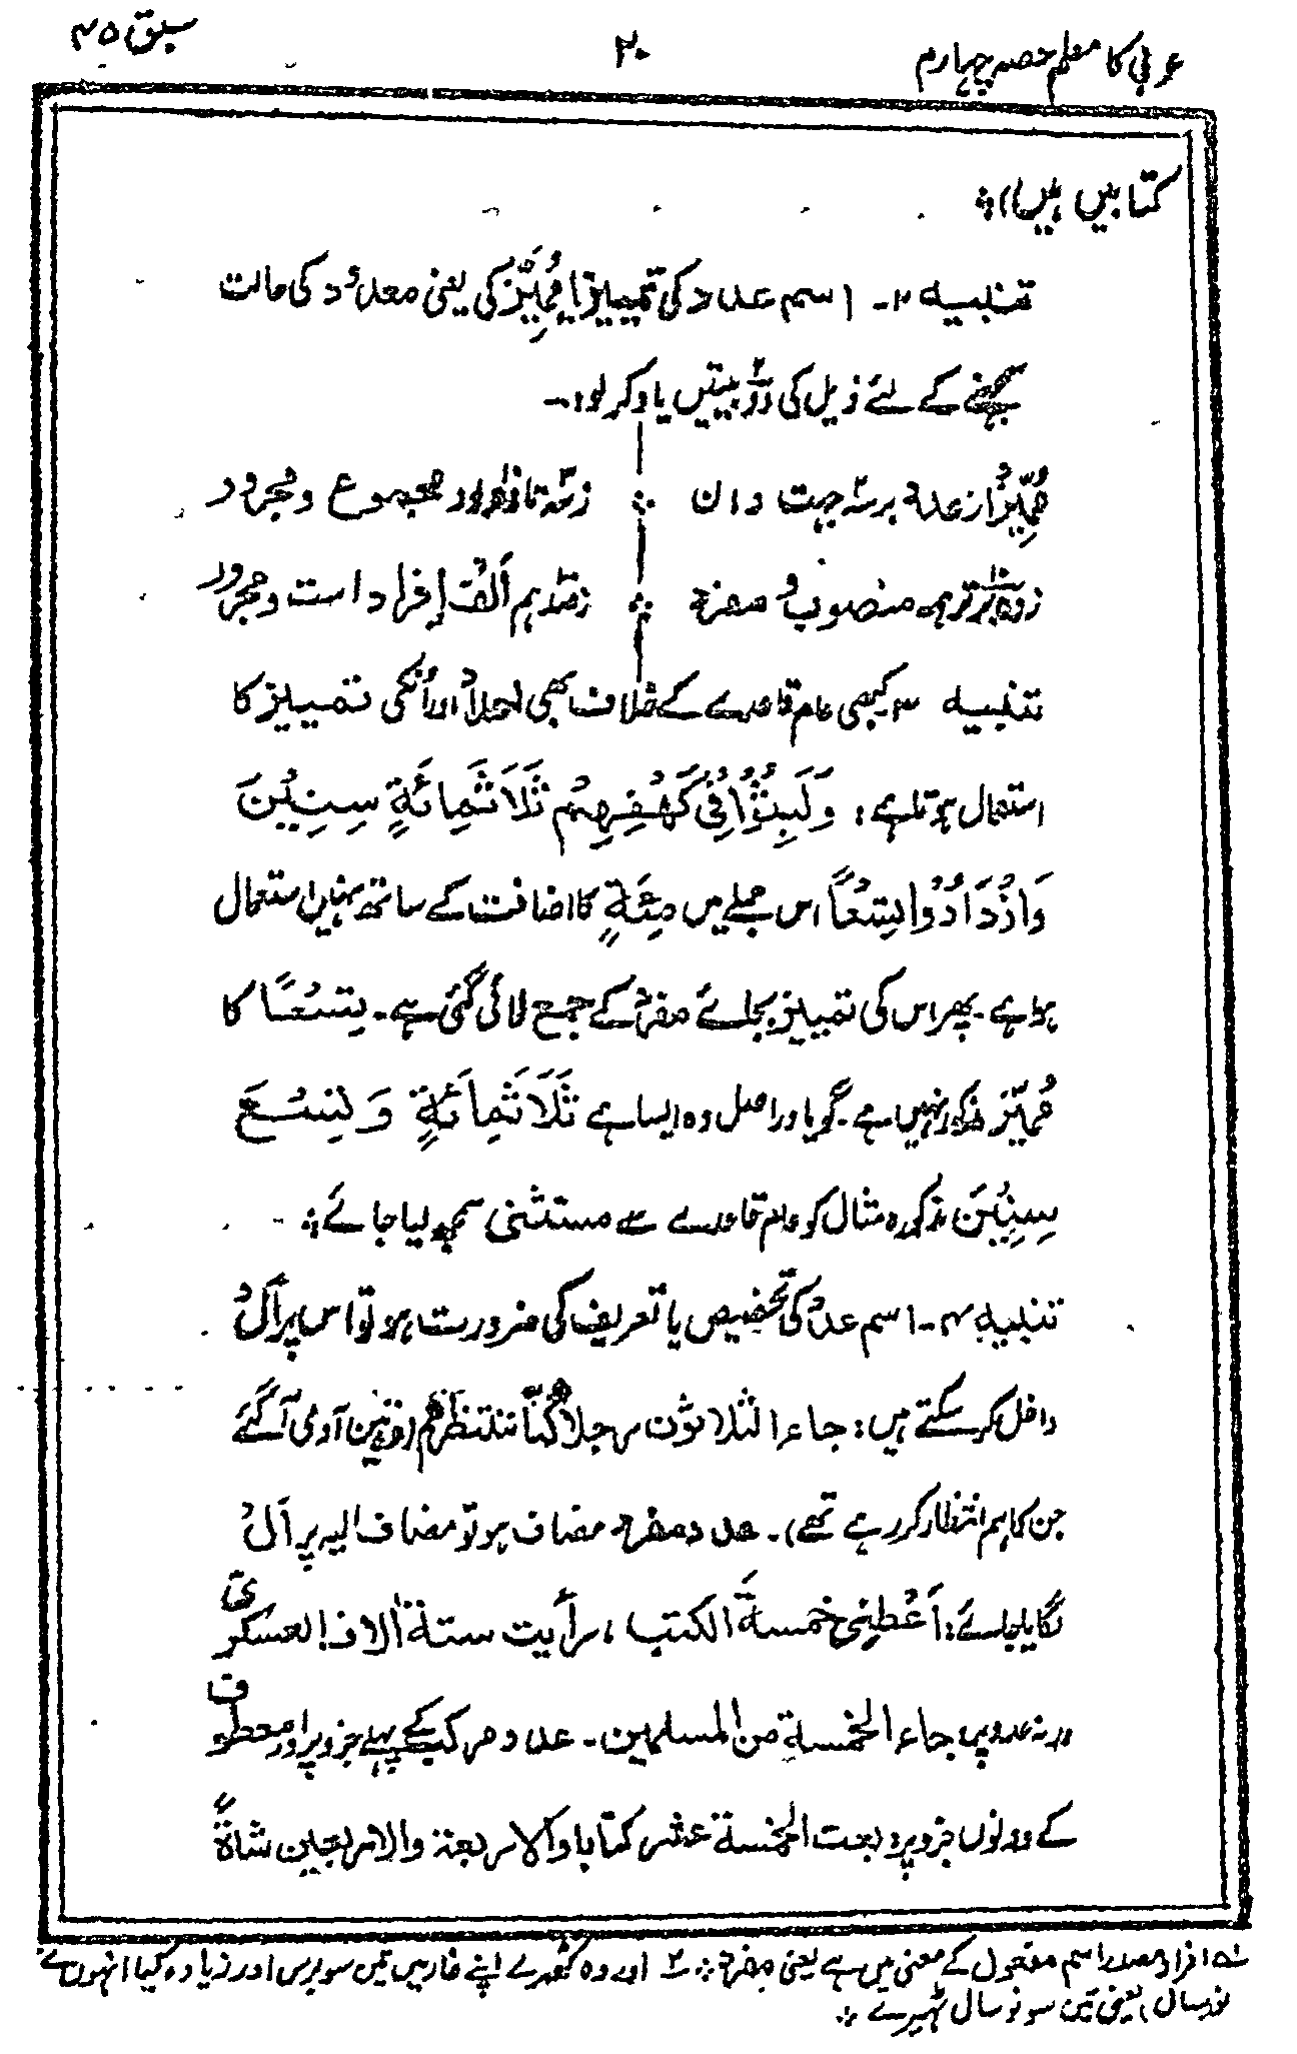 عربی کا معلم حصہ چہارم
۲۰
سبق ۴۵
کتابیں ہیں)؛
تنبیہ ۲۔ اسم عدد کی تمییز یا مُمَیَّز کی یعنی معدُود کی حالت
سمجھنے کے لئے ذیل کی دو بیتیں یاد کر لو:۔
مُمَیَّز از عدد بر سہ جہت دان ؛ ز سہ تا دہ مجموع و مجرور
ز دہ برتر ہمہ منصوب و مفرد ؛ ز صد ہم اَلف إفراد است و مجرور
تنبیہ ۳ کبھی عام قاعدے کے خلاف بھی اعداد اور اُنکی تمییز کا
استعمال ہوتا ہے: وَلَبِثُوْا فِیْ کَهْفِهِمْ ثَلَاثَمِائَةٍ سِنِیْنَ
وَازْدَادُوْا تِسْعًا اس جملے میں مِئَةٍ کا اضافت کے ساتھ نہیں استعمال
ہوا ہے۔ پھر اس کی تمییز بجائے مفرد کے جمع لائی گئی ہے۔ تِسْعًا کا
مُمَیَّز مذکور نہیں ہے۔ گویا در اصل وہ ایسا ہے ثَلَاثَمِائَةٍ وَتِسْعَ
سِنِیْنَ مذکورہ مثال کو عام قاعدے سے مستثنٰی سمجھ لیا جائے؛
تنبیہ ۴۔ اسم عدد کی تخصیص یا تعریف کی ضرورت ہو تو اس پر اَلْ
داخل کر سکتے ہیں: جاء الثلاثون رجلا کُنَّا ننتظرهم (وہ تیس آدمی آ گئے
جن کا ہم انتظار کر رہے تھے)۔ عدد مفرد مضاف ہو تو مضاف الیہ پر اَلْ
لگایا جائے: اَعْطِنِی خمسةَ الکتب، رأیت ستة اٰلاف العسکری
ورنہ عدد پر جاء الخمسة من المسلمین۔ عدد مرکب کے پہلے جزو پر اور معطوف
کے دونوں جزو پر: بعت الخمسة عشر کتابا والاربعة والاربعین شاةً
لہ افراد مصدر اسم مفعول کے معنی میں ہے یعنی مفرد؛ ۲ اور وہ ٹھہرے اپنے غار میں تین سو برس اور زیادہ کیا انہوں نے
نو سال، یعنی تین سو نو سال ٹھیرے ؛